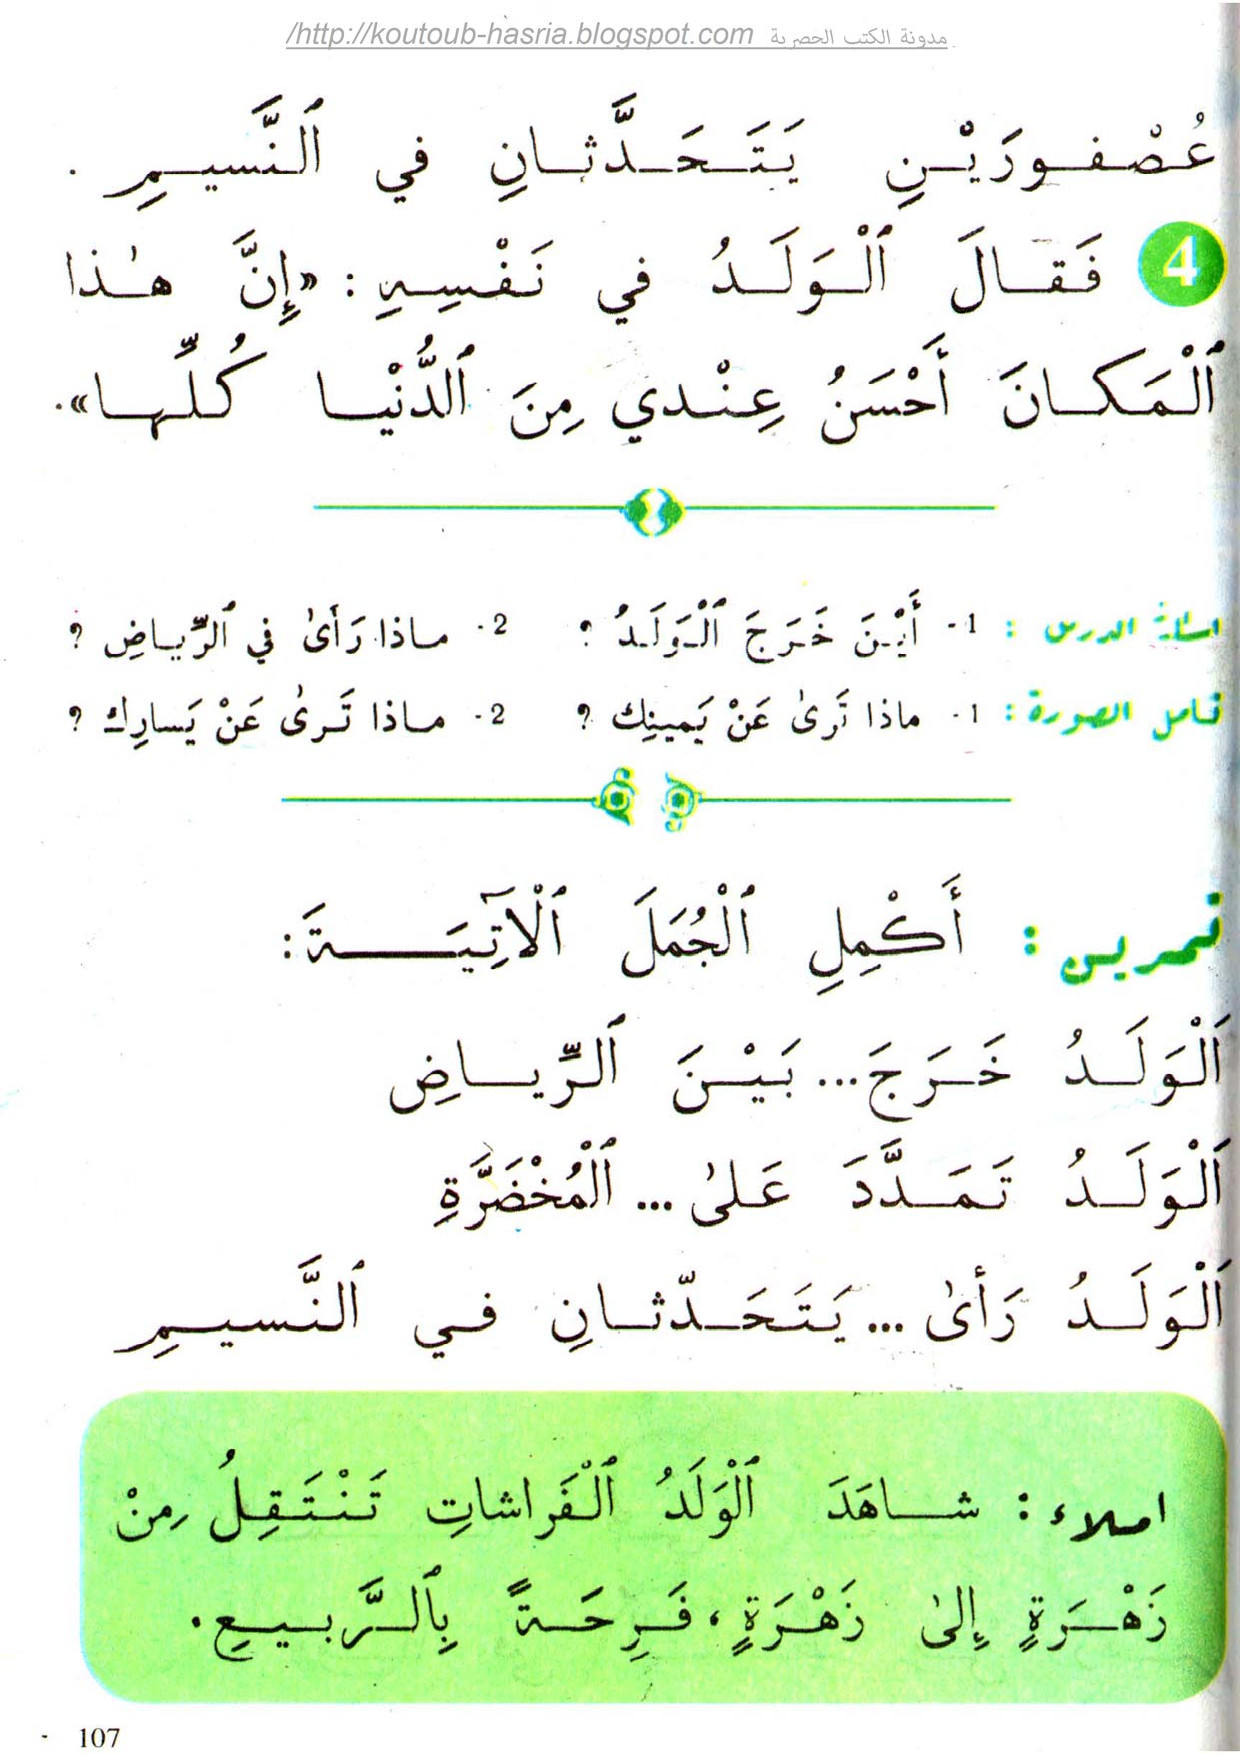 مدونة الكتب الحصرية http://koutoub-hasria.blogspot.com/
عُصْفورَيْنِ يَتَحَدَّثانِ في ٱلنَّسيمِ .
4 فَقالَ ٱلْوَلَدُ في نَفْسِهِ : «إِنَّ هٰذا
ٱلْمَكانَ أَحْسَنُ عِنْدي مِنَ ٱلدُّنْيا كُلِّها».
اسئلة الدرس : 1 - أَيْنَ خَرَجَ ٱلْوَلَدُ ؟ 2 - ماذا رَأىٰ في ٱلرِّياضِ ؟
تأمل الصورة : 1 - ماذا تَرىٰ عَنْ يَمينِك ؟ 2 - ماذا تَرىٰ عَنْ يَسارِك ؟
تمرين : أَكْمِلِ ٱلْجُمَلَ ٱلْآتِيَةَ :
اَلْوَلَدُ خَرَجَ ... بَيْنَ ٱلرِّياضِ
اَلْوَلَدُ تَمَدَّدَ عَلىٰ ... ٱلْمُخْضَرَّةِ
اَلْوَلَدُ رَأىٰ ... يَتَحَدّثانِ في ٱلنَّسيمِ
املاء : شاهَدَ ٱلْوَلَدُ ٱلْفَراشاتِ تَنْتَقِلُ مِنْ
زَهْرَةٍ إِلىٰ زَهْرَةٍ ، فَرِحَةً بِٱلرَّبيعِ .
107